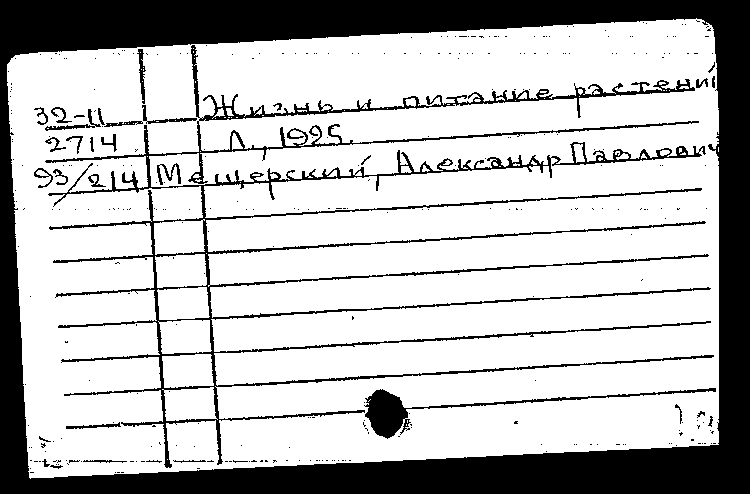 32-11 Жизнь и питание растений
2714 Л., 1925.
93/214 Мещерский, Александр Павлович